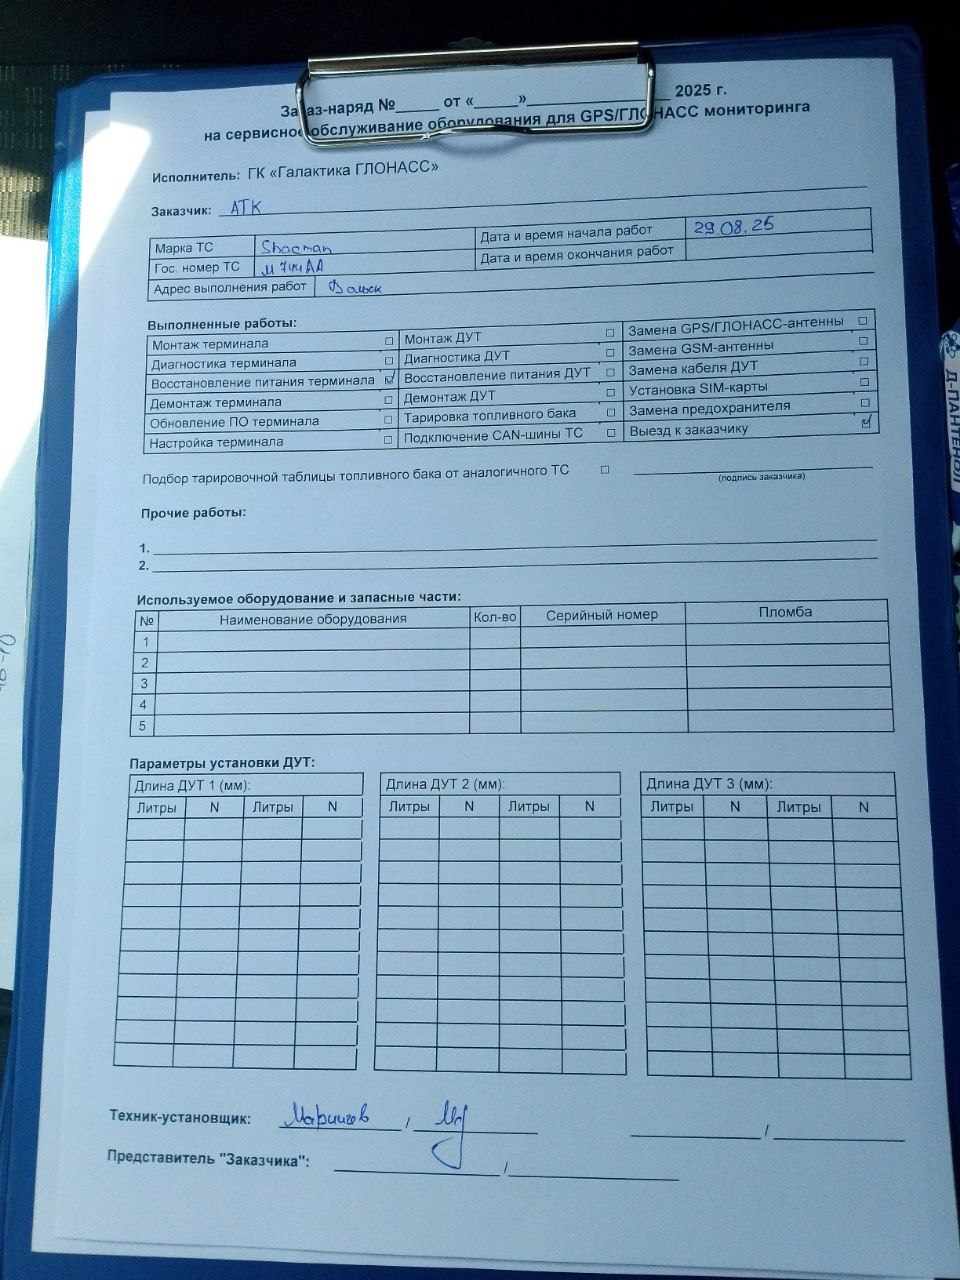 Заказ-наряд №_____ от «_____»________________ 2025 г.
на сервисное обслуживание оборудования для GPS/ГЛОНАСС мониторинга
Исполнитель: ГК «Галактика ГЛОНАСС»
Заказчик: АТК
Марка ТС Shacman Дата и время начала работ 29.08.25
Гос. номер ТС М744АА Дата и время окончания работ
Адрес выполнения работ Вольск
Выполненные работы:
Монтаж терминала ☐ Монтаж ДУТ ☐ Замена GPS/ГЛОНАСС-антенны ☐
Диагностика терминала ☐ Диагностика ДУТ ☐ Замена GSM-антенны ☐
Восстановление питания терминала ☑ Восстановление питания ДУТ ☐ Замена кабеля ДУТ ☐
Демонтаж терминала ☐ Демонтаж ДУТ ☐ Установка SIM-карты ☐
Обновление ПО терминала ☐ Тарировка топливного бака ☐ Замена предохранителя ☐
Настройка терминала ☐ Подключение CAN-шины ТС ☐ Выезд к заказчику ☑
Подбор тарировочной таблицы топливного бака от аналогичного ТС ☐
(подпись заказчика)
Прочие работы:
1.
2.
Используемое оборудование и запасные части:
№ Наименование оборудования Кол-во Серийный номер Пломба
1
2
3
4
5
Параметры установки ДУТ:
Длина ДУТ 1 (мм): Длина ДУТ 2 (мм): Длина ДУТ 3 (мм):
Литры N Литры N Литры N Литры N Литры N Литры N
Техник-установщик: / /
Представитель "Заказчика": /
Д-ПАНТЕНОЛ